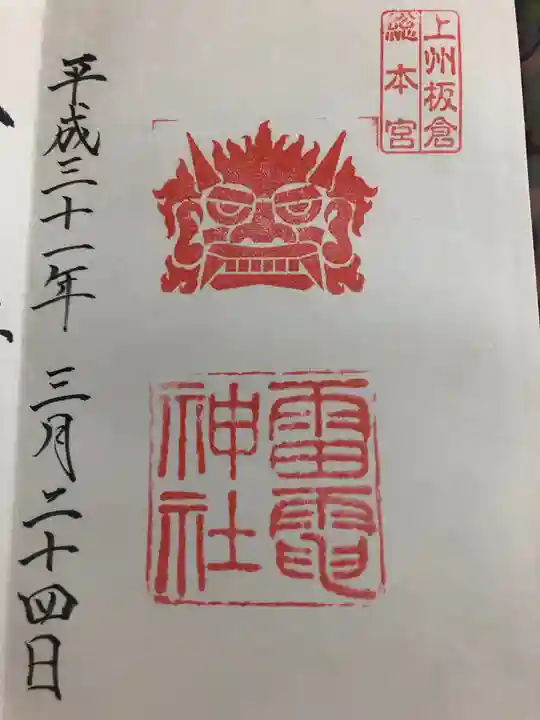 上州板倉
総本宮
雷電
神社
平成三十一年 三月二十四日